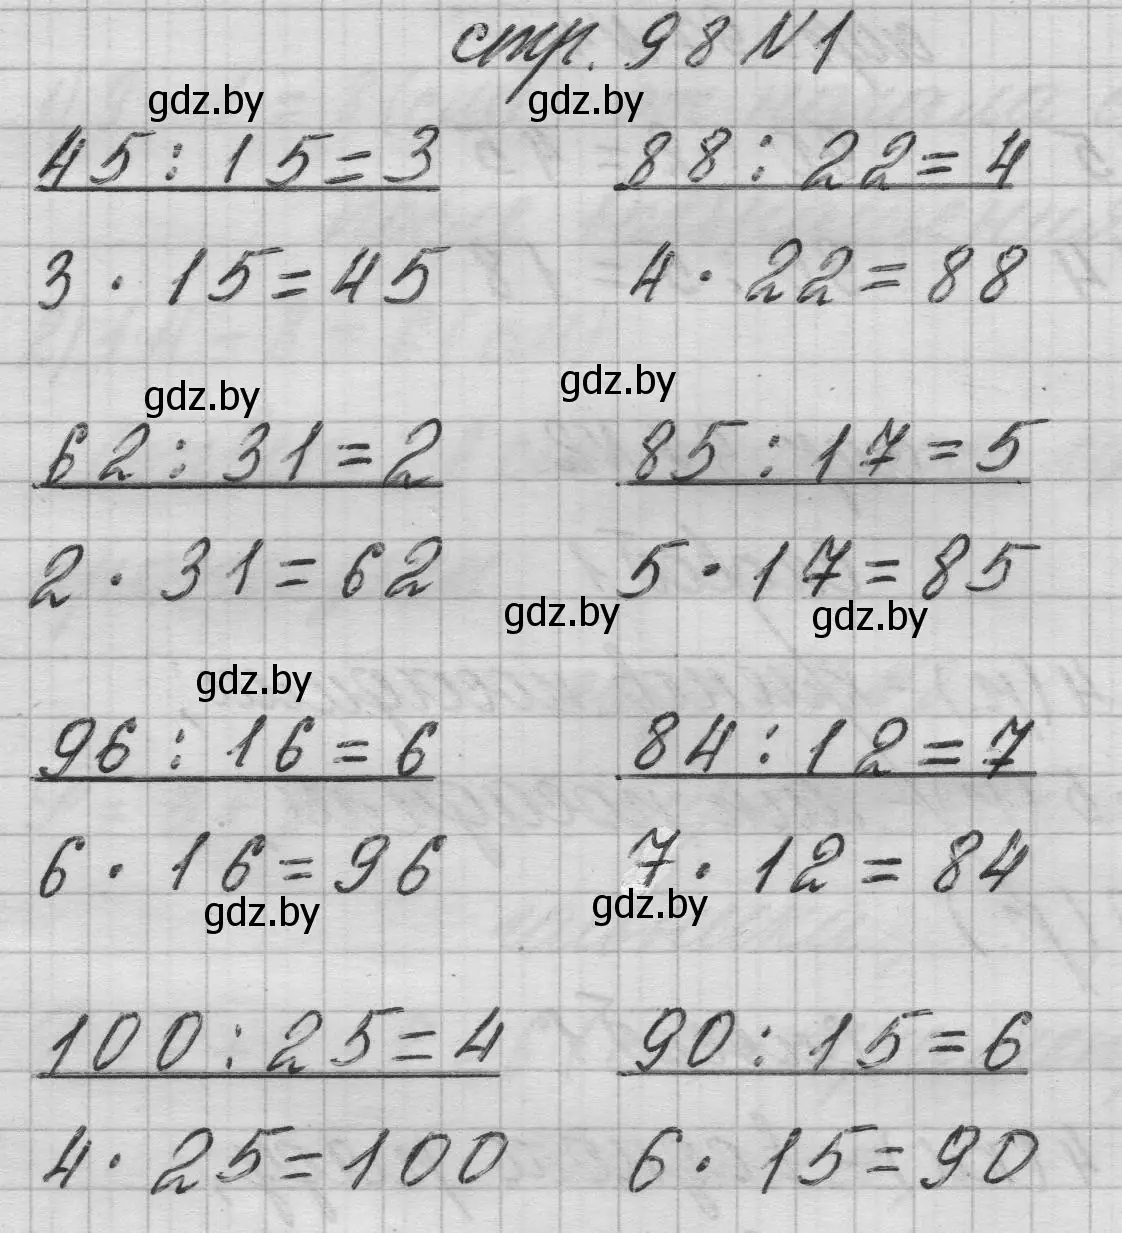 стр. 98 №1
gdz.by gdz.by
45 : 15 = 3 88 : 22 = 4
3 · 15 = 45 4 · 22 = 88
gdz.by gdz.by
62 : 31 = 2 85 : 17 = 5
2 · 31 = 62 5 · 17 = 85
gdz.by gdz.by
gdz.by
96 : 16 = 6 84 : 12 = 7
6 · 16 = 96 7 · 12 = 84
gdz.by gdz.by
100 : 25 = 4 90 : 15 = 6
4 · 25 = 100 6 · 15 = 90